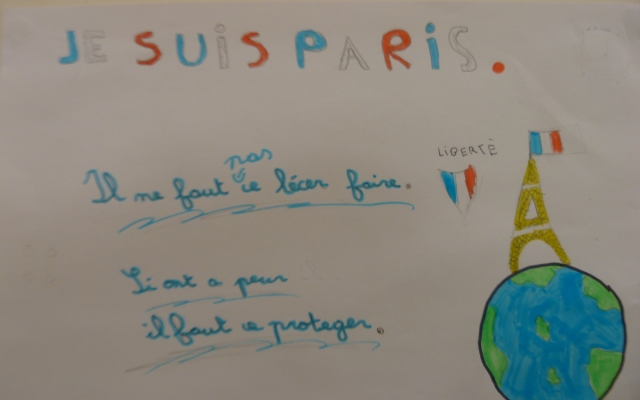 JE SUIS PARIS.
LIBERTÉ
pas
Il ne faut ce lécer faire.
Si ont a peur
il faut ce proteger.